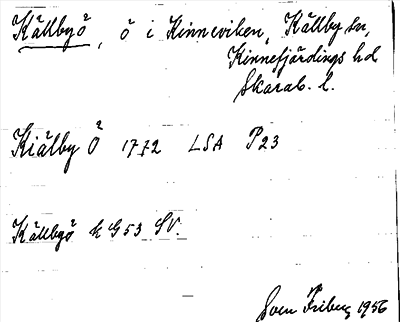 Källbyö, ö i Kinneviken, Källby sn,
Kinnefjärdings hd
Skarab. l.
Kiälby Ö 1772 LSA P23
Källbyö k G53 SV.
Sven Friberg 1956